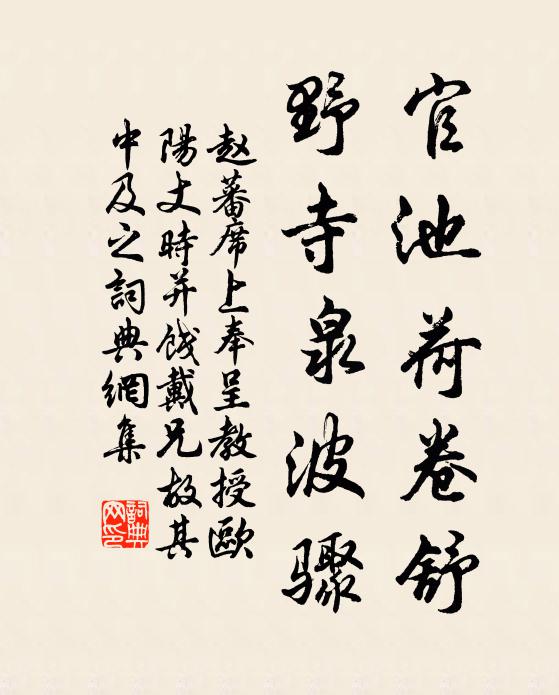 官池荷卷舒
野寺泉波驟
赵蕃席上奉呈教授歐
陽丈時并餞戴兄故其
中及之詞典網集
詞典网印